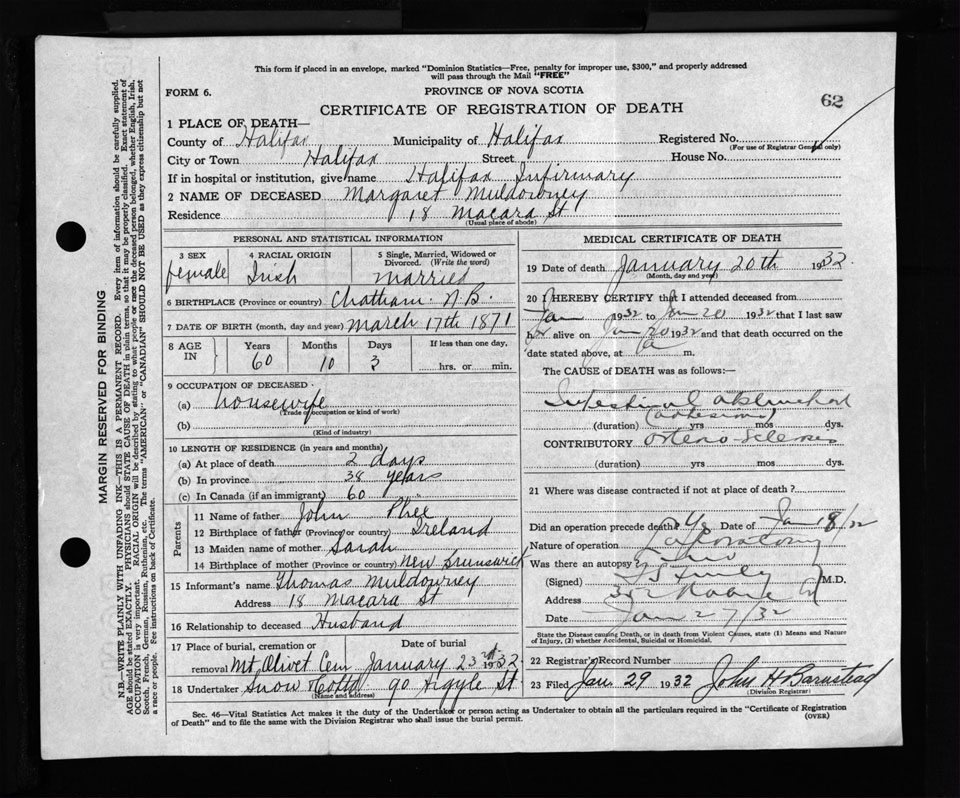 This form if placed in an envelope, marked "Dominion Statistics—Free, penalty for improper use, $300," and properly addressed
will pass through the Mail "FREE"
FORM 6.
PROVINCE OF NOVA SCOTIA
62
CERTIFICATE OF REGISTRATION OF DEATH
1 PLACE OF DEATH—
County of Halifax Municipality of Halifax Registered No.
(For use of Registrar General only)
City or Town Halifax Street House No.
If in hospital or institution, give name Halifax Infirmary
2 NAME OF DECEASED Margaret Muldowney
Residence 18 Macara St
(Usual place of abode)
PERSONAL AND STATISTICAL INFORMATION
3 SEX 4 RACIAL ORIGIN 5 Single, Married, Widowed or
Divorced. (Write the word)
female Irish married
6 BIRTHPLACE (Province or country) Chatham N.B.
7 DATE OF BIRTH (month, day and year) March 17th 1871
8 AGE IN Years Months Days If less than one day,
60 10 3 hrs. or min.
9 OCCUPATION OF DECEASED
(a) housewife
(Trade, occupation or kind of work)
(b)
(Kind of industry)
10 LENGTH OF RESIDENCE (in years and months)
(a) At place of death 2 days
(b) In province 38 years
(c) In Canada (if an immigrant) 60
Parents
11 Name of father John
12 Birthplace of father (Province or country) Ireland
13 Maiden name of mother Sarah
14 Birthplace of mother (Province or country) New Brunswick
15 Informant's name Thomas Muldowney
Address 18 Macara St
16 Relationship to deceased Husband
17 Place of burial, cremation or Date of burial
removal Mt Olivet Cem January 23rd 1932
18 Undertaker Snow 90 Argyle St.
(Name and address)
MEDICAL CERTIFICATE OF DEATH
19 Date of death January 20th 1932
(Month, day and year)
20 I HEREBY CERTIFY that I attended deceased from
Jan 1932 to Jan 20 1932 that I last saw
her alive on Jan 20 1932 and that death occurred on the
date stated above, at m.
The CAUSE of DEATH was as follows:—
Intestinal obstruction
(adhesions)
(duration) yrs mos dys.
CONTRIBUTORY arterio-sclerosis
(duration) yrs mos dys.
21 Where was disease contracted if not at place of death?
Did an operation precede death? Yes Date of Jan 18/32
Nature of operation Laparotomy
Was there an autopsy? no
(Signed) M.D.
Address
Date Jan 27/32
State the Disease causing Death, or in death from Violent Causes, state (1) Means and Nature
of Injury, (2) whether Accidental, Suicidal or Homicidal.
22 Registrar's Record Number
23 Filed Jan. 29 1932 John H Barnstead
(Division Registrar)
Sec. 46—Vital Statistics Act makes it the duty of the Undertaker or person acting as Undertaker to obtain all the particulars required in the "Certificate of Registration
of Death" and to file the same with the Division Registrar who shall issue the burial permit.
(OVER)
MARGIN RESERVED FOR BINDING
N.B.—WRITE PLAINLY WITH UNFADING INK—THIS IS A PERMANENT RECORD. Every item of information should be carefully supplied.
AGE should be stated EXACTLY. PHYSICIANS should STATE CAUSE OF DEATH in plain terms, so that it may be properly classified. Exact statement of
OCCUPATION is very important. RACIAL ORIGIN will be described by stating to what people or race the deceased person belonged, whether English, Irish,
Scotch, French, German, Russian, Ruthenian, etc. The terms "AMERICAN" or "CANADIAN" SHOULD NOT BE USED as they express citizenship but not
a race or people. See instructions on back of Certificate.